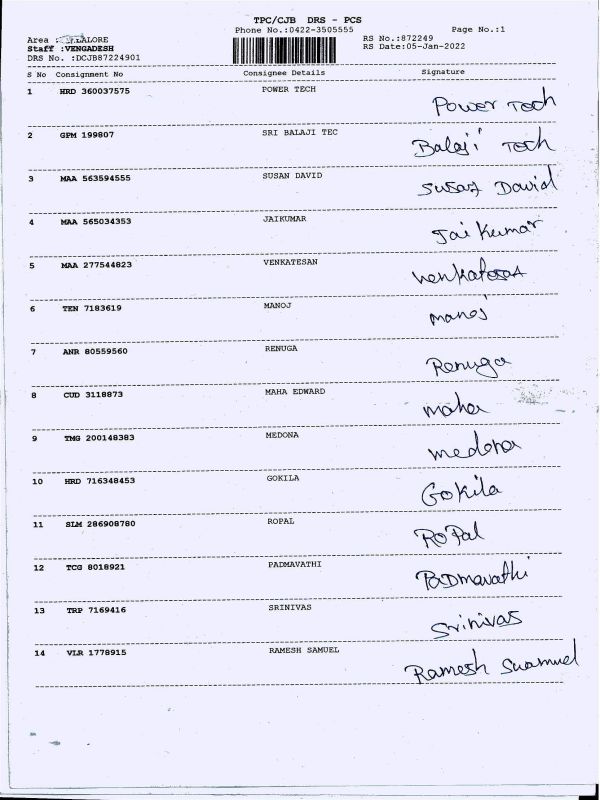 TPC/CJB DRS - PCS
Phone No.:0422-3505555
Page No.:1
Area :
RS No.:872249
Staff :VENGADESH
RS Date:05-Jan-2022
DRS No. :DCJB87224901
S No Consignment No Consignee Details Signature
1 HRD 360037575 POWER TECH
Power Tech
2 GPM 199807 SRI BALAJI TEC
Balaji Tech
3 MAA 563594555 SUSAN DAVID
Susan David
4 MAA 565034353 JAIKUMAR
Jai Kumar
5 MAA 277544823 VENKATESAN
Venkatesan
6 TEN 7183619 MANOJ
Manoj
7 ANR 80559560 RENUGA
Renuga
8 CUD 3118873 MAHA EDWARD
maha
9 TMG 200148383 MEDONA
medona
10 HRD 716348453 GOKILA
Gokila
11 SLM 286908780 ROPAL
RoPal
12 TCG 8018921 PADMAVATHI
PaDmavathi
13 TRP 7169416 SRINIVAS
Srinivas
14 VLR 1778915 RAMESH SAMUEL
Ramesh Suamuel